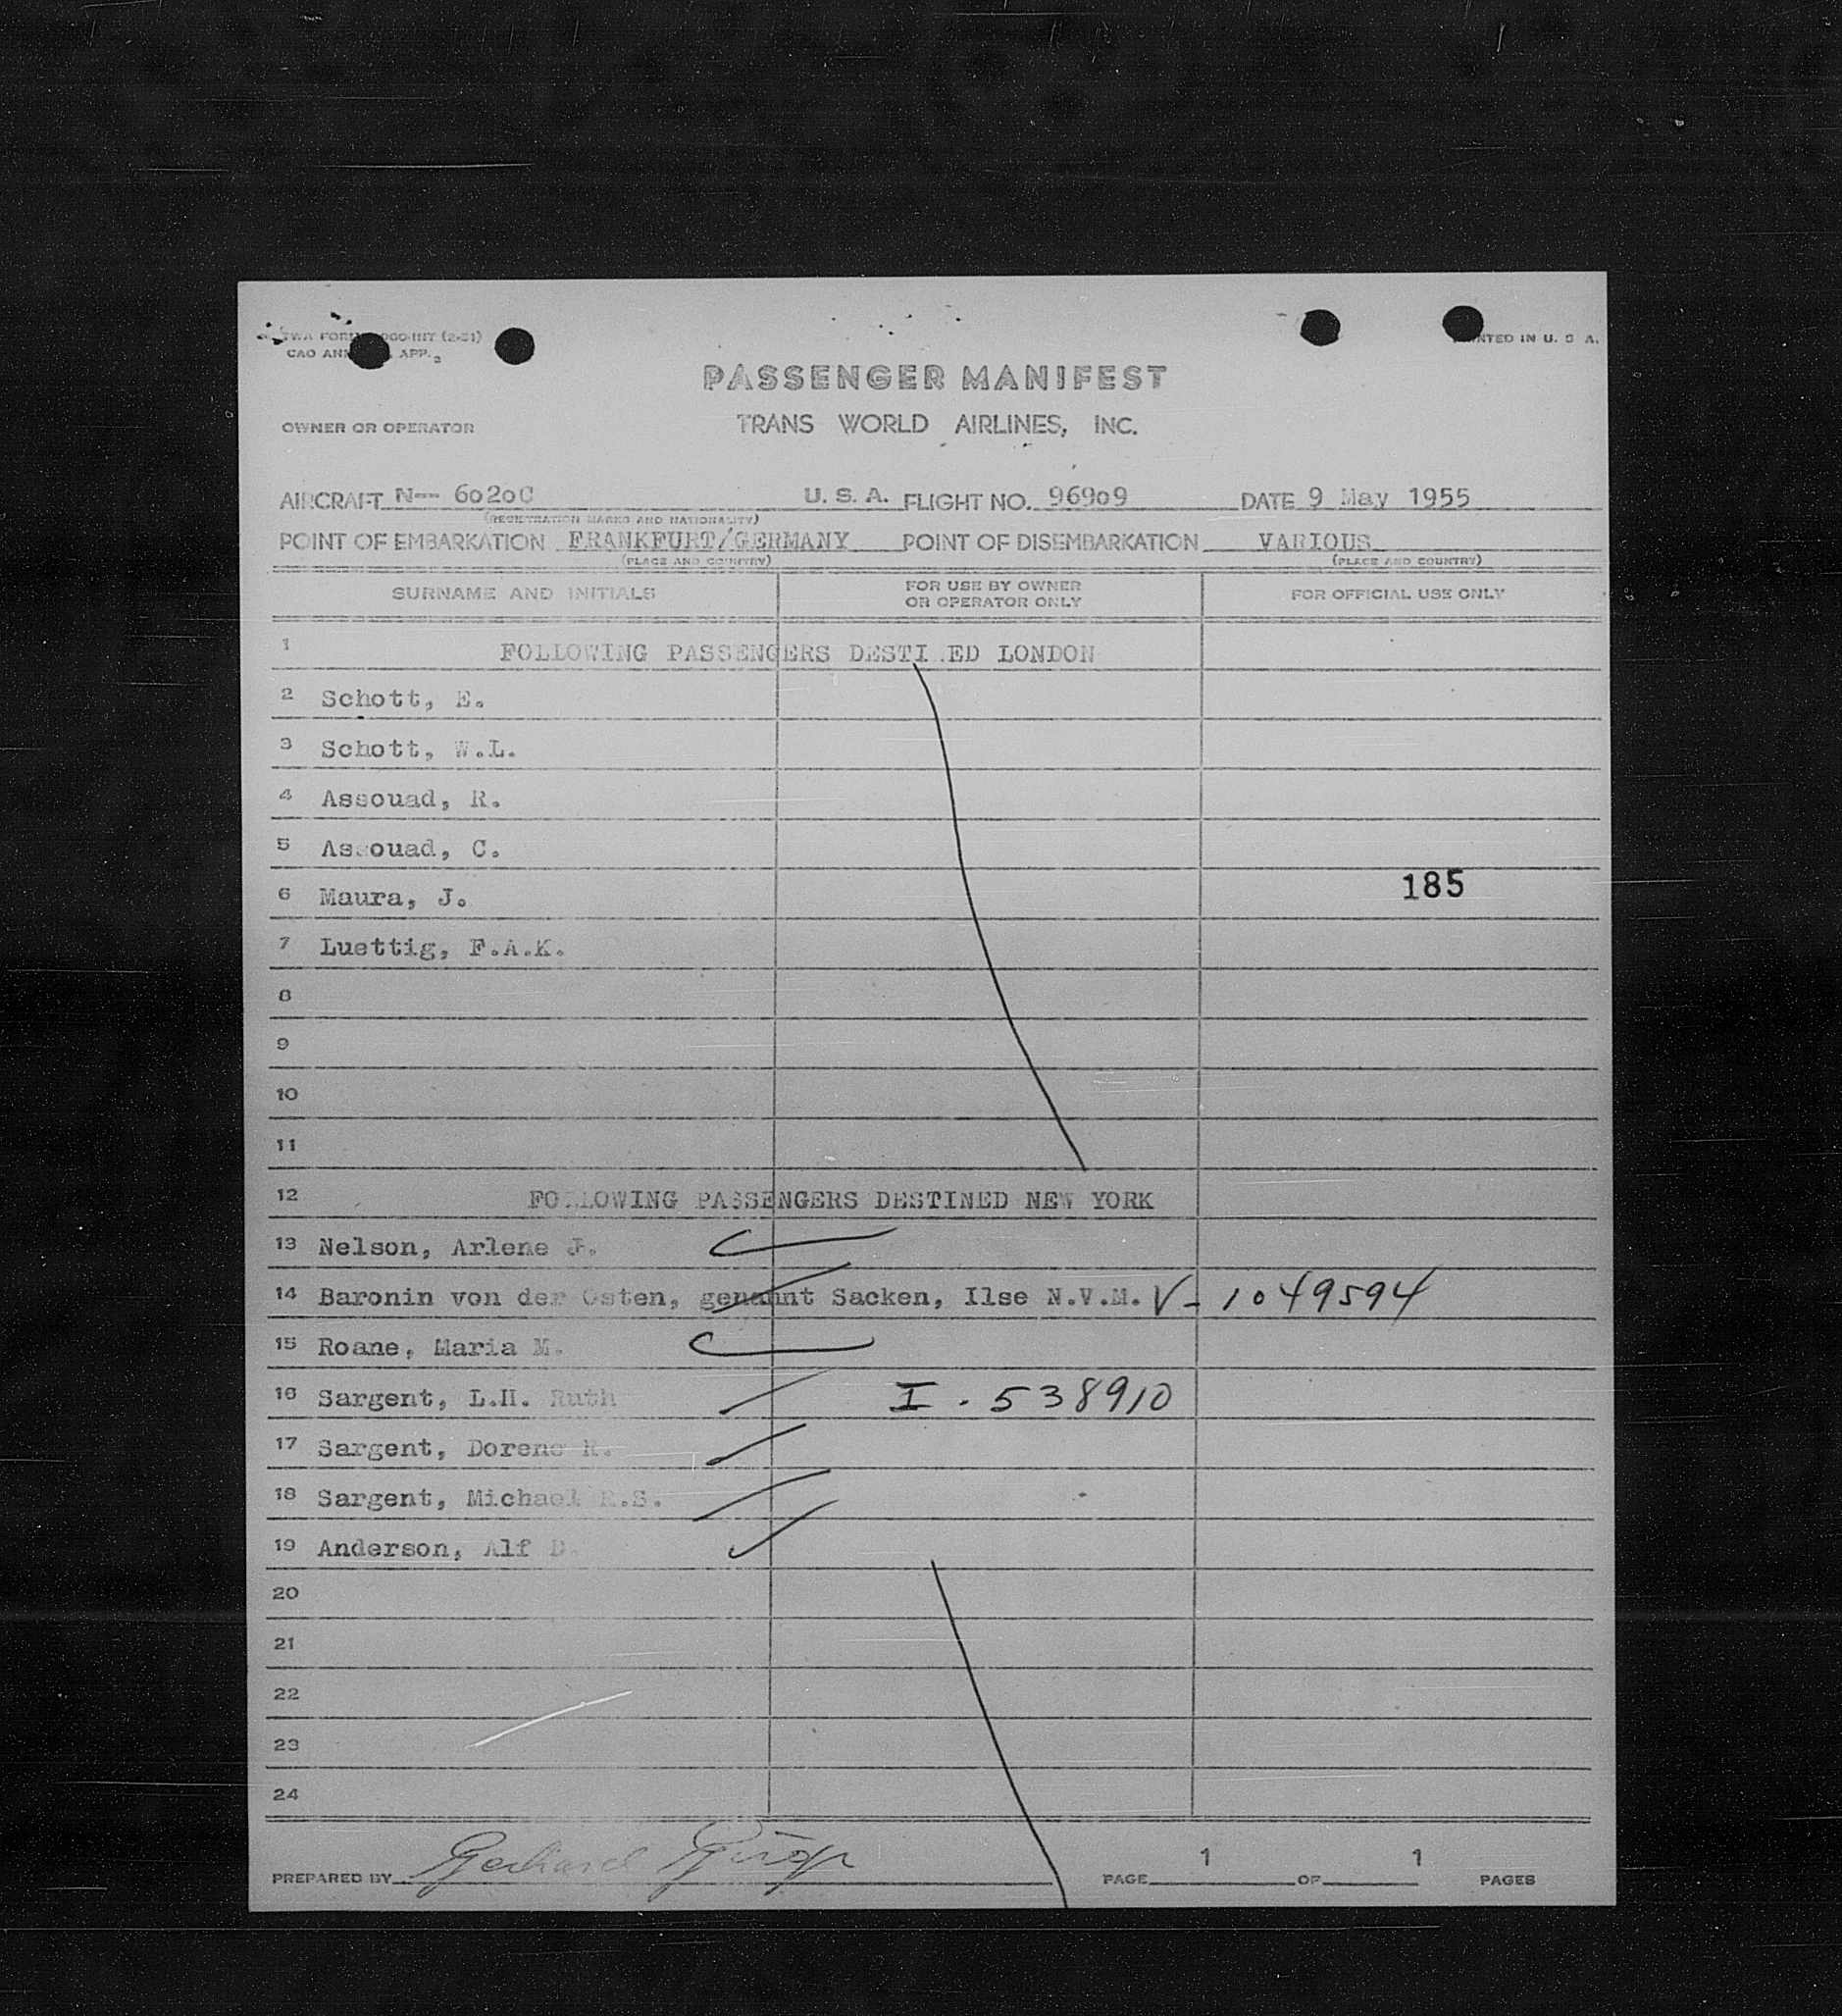 TWA FORM
PRINTED IN U. S. A.
CAO
APP. 2
PASSENGER MANIFEST
OWNER OR OPERATOR TRANS WORLD AIRLINES, INC.
AIRCRAFT N-- 6020C U. S. A. FLIGHT NO. 96909 DATE 9 May 1955
(REGISTRATION MARKS AND NATIONALITY)
POINT OF EMBARKATION FRANKFURT/GERMANY POINT OF DISEMBARKATION VARIOUS
(PLACE AND COUNTRY) (PLACE AND COUNTRY)
SURNAME AND INITIALS FOR USE BY OWNER OR OPERATOR ONLY FOR OFFICIAL USE ONLY
1 FOLLOWING PASSENGERS DESTI ED LONDON
2 Schott, E.
3 Schott, W.L.
4 Assouad, R.
5 Assouad, C.
6 Maura, J. 185
7 Luettig, F.A.K.
8
9
10
11
12 FOLLOWING PASSENGERS DESTINED NEW YORK
13 Nelson, Arlene
14 Baronin von der Osten, genannt Sacken, Ilse N.V.M. V- 1049594
15 Roane, Maria M.
16 Sargent, L.H. Ruth I - 538910
17 Sargent, Dorene R.
18 Sargent, Michael R.S.
19 Anderson, Alf D.
20
21
22
23
24
PREPARED BY Gerhard PAGE 1 OF 1 PAGES